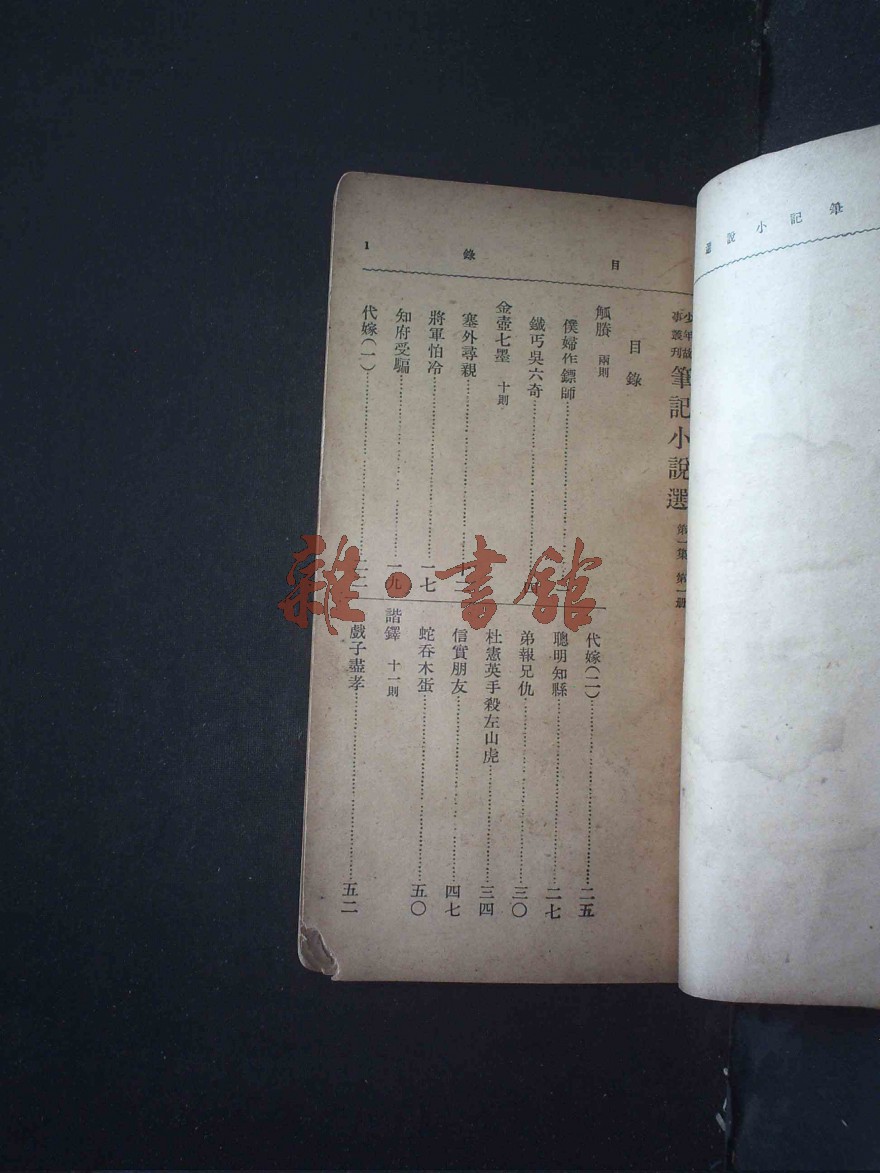 筆記小說選
1 錄 目
少年故事叢刊 筆記小說選 第一集 第一册
目錄
觚賸 兩則
僕婦作鏢師
鐵丐吳六奇……四
金壺七墨 十則
塞外尋親……十二
將軍怕冷……一七
知府受騙……一九
代嫁(一)……二二
代嫁(二)……二五
聰明知縣……二七
弟報兄仇……三〇
杜憲英手殺左山虎……三四
信實朋友……四七
蛇吞木蛋……五〇
諧鐸 十一則
戲子盡孝……五二
雜·書館